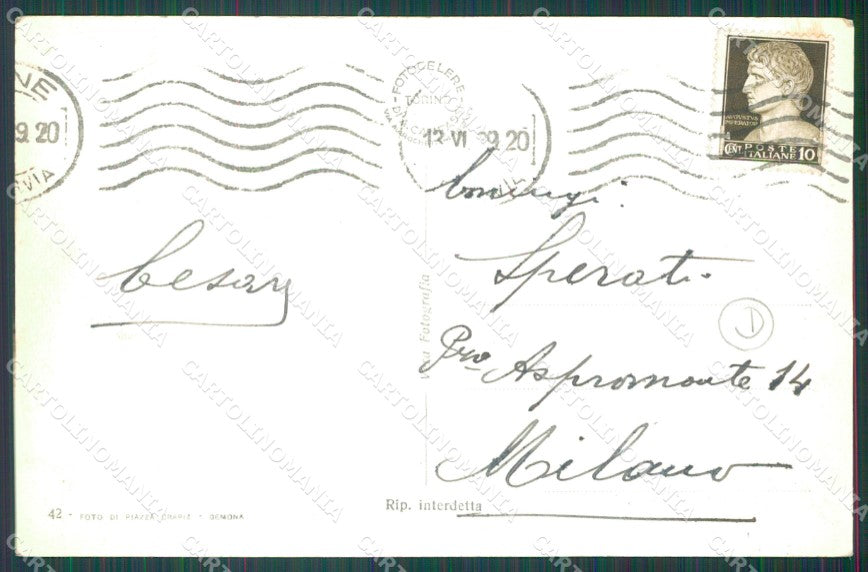 NE
9.20
VIA
FOTOCELERE
TORINO
12·VI 39.20
AVGVSTVS
IMPERATOR
CENT POSTE ITALIANE 10
Coniugi:
Sperati
Cesare
P.za Aspromonte 14
Milano
Vera Fotografia
D
Rip. interdetta
42 - FOTO DI PIAZZA - GEMONA
CARTOLINOMANIA